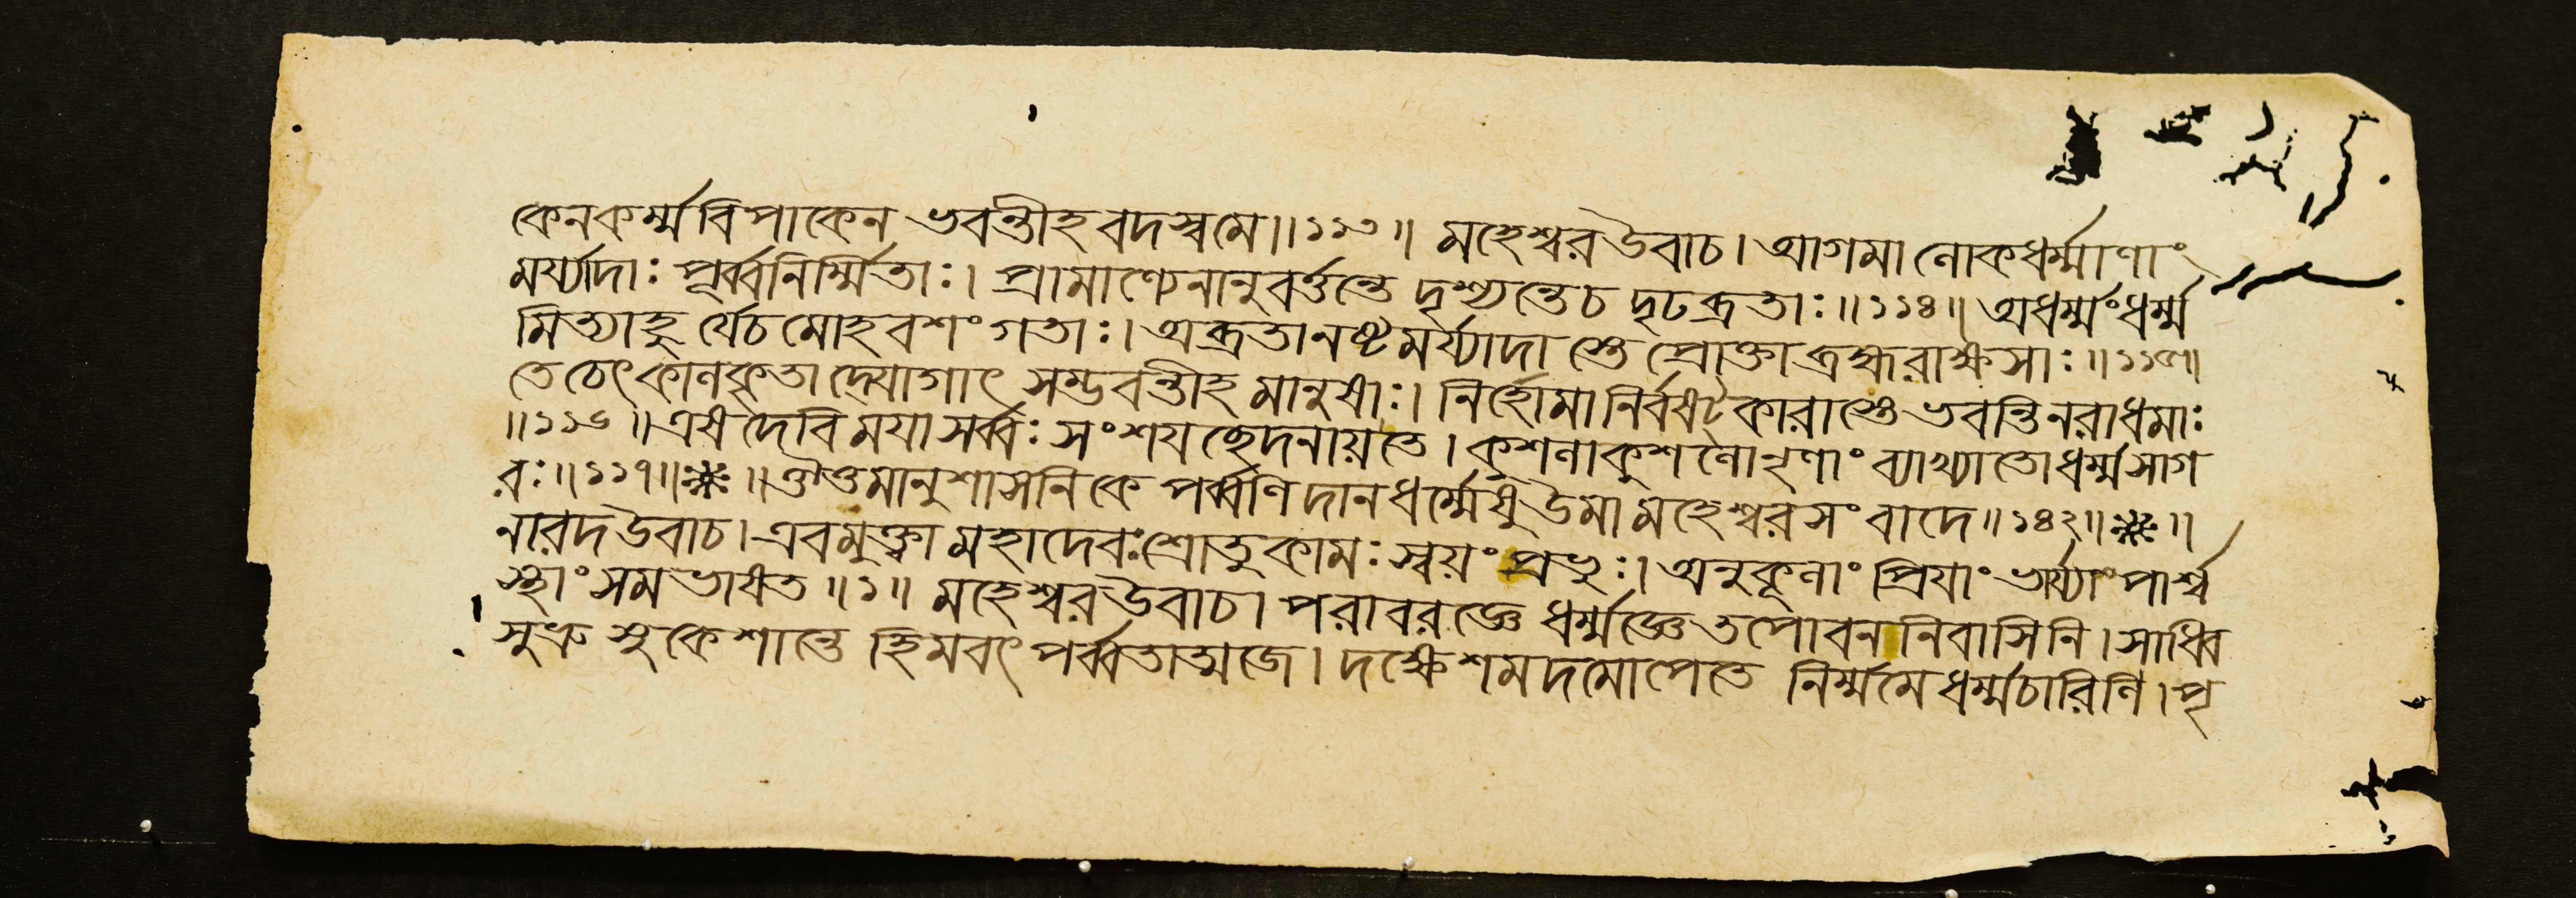 কেনকর্ম্মবিপাকেন ভবন্তীহ বদস্বমে॥১১৩॥ মহেশ্বরউবাচ। আগমালোকধর্ম্মাণাং
মর্য্যাদাঃ পূর্ব্বনির্ম্মিতাঃ। প্রামাণ্যেনানুবর্ত্তন্তে দৃশ্যন্তেচ দৃঢব্রতাঃ॥১১৪॥ অধর্ম্মংধর্ম্ম
মিত্যাহুর্যেচমোহবশংগতাঃ। অব্রতানষ্টমর্য্যাদাস্তে প্রোক্তাব্রহ্মরাক্ষসাঃ॥১১৫॥
তেচেৎকালকৃতাদ্যোগাৎ সম্ভবন্তীহ মানুষাঃ। নির্হোমানির্বষট্কারাস্তে ভবন্তিনরাধমাঃ
॥১১৬॥এষদেবিময়াসর্ব্বঃ সংশয়ছেদনায়তে। কুশলাকুশলোনৃণাং ব্যাখ্যাতোধর্ম্মসাগ
রঃ॥১১৭॥❈॥ঔওমানুশাসনিকে পর্ব্বণিদানধর্ম্মেষু উমামহেশ্বরসংবাদে॥১৪২॥❈॥
নারদউবাচ। এবমুক্ত্বা মহাদেবঃশ্রোতুকামঃ স্বয়ং প্রভুঃ। অনুকূলাং প্রিয়াং ভার্য্যাং পার্শ্ব
স্থাং সমভাষত॥১॥ মহেশ্বরউবাচ। পরাবরজ্ঞে ধর্ম্মজ্ঞে তপোবননিবাসিনি। সাধ্বি
সুভ্রু সুকেশান্তে হিমবৎপর্ব্বতাত্মজে। দক্ষেশমদমোপেতে নির্ম্মমে ধর্ম্মচারিণি। পৃ